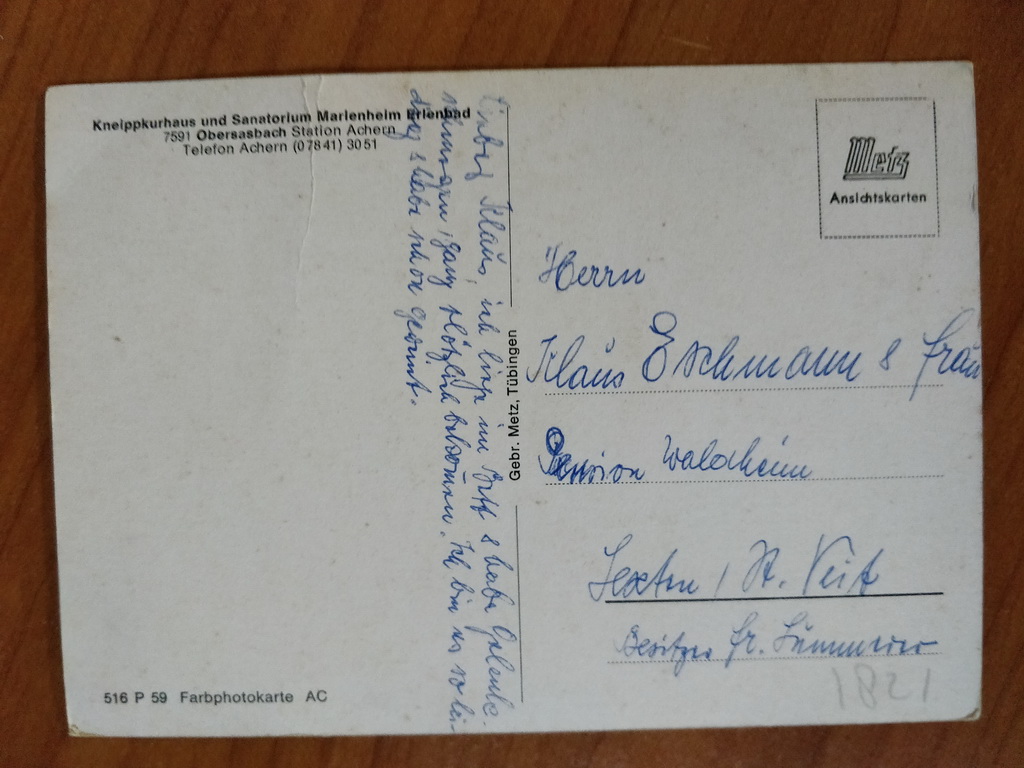 Kneippkurhaus und Sanatorium Marienheim Erlenbad
7591 Obersasbach Station Achern
Telefon Achern (07841) 3051
Klaus, ich liege im Bett & habe Gelenks-
ganz plötzlich bekommen. Ich bin
& habe schon geweint.
516 P 59 Farbphotokarte AC
Gebr. Metz, Tübingen
Metz
Ansichtskarten
Herrn
Klaus Eschmann & Frau
Pension Waldheim
Sexten / St. Veit
Besitzer Fr.
1821